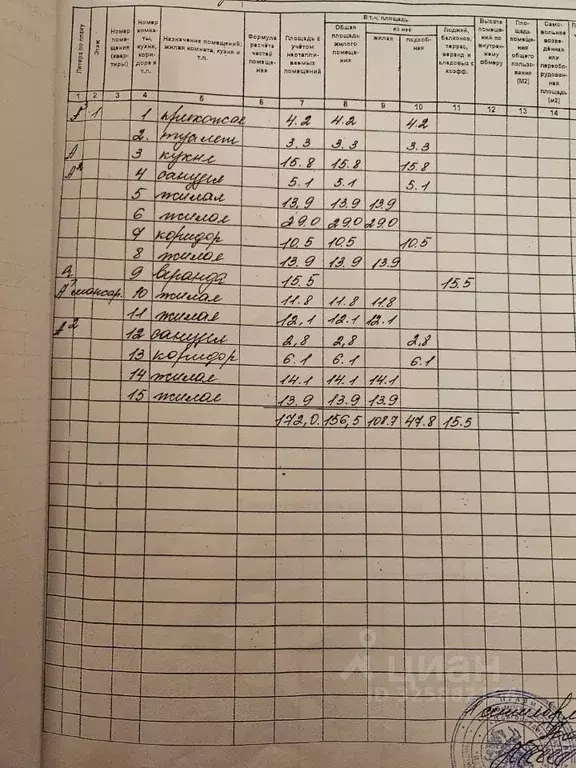 В т.ч. площадь
из нее
Литера по плану | Этаж | Номер помещения (квартиры) | Номер комнаты, кухни, коридора и т.п. | Назначение помещений: жилая комната, кухня и т.п. | Формула расчёта частей помещения | Площадь с учётом неотапливаемых помещений | Общая площадь жилого помещения | жилая | подсобная | Лоджий, балконов, террас, веранд и кладовых с коэфф. | Высота помещения по внутреннему обмеру | Площадь помещения общего пользования (М2) | Самовольно возведённая или переоборудованная площадь (м2)
1 2 3 4 5 6 7 8 9 10 11 12 13 14
1 1 прихожая 4.2 4.2 4.2
2. туалет 3.3 3.3 3.3
А 3 кухня 15.8 15.8 15.8
4 санузел 5.1 5.1 5.1
5 жилая 13,9 13.9 13.9
6 жилая 29.0 29.0 29.0
7 коридор 10,5 10,5 10.5
8 жилая 13.9 13.9 13.9
а 9 веранда 15.5 15.5
мансар. 10 жилая 11.8 11.8 11.8
11 жилая 12,1 12.1 12.1
А2 12 санузел 2,8 2,8 2,8
13 коридор 6.1 6.1 6.1
14 жилая 14.1 14.1 14.1
15 жилая 13.9 13.9 13.9
172,0. 156,5 108.7 47.8 15.5
циан